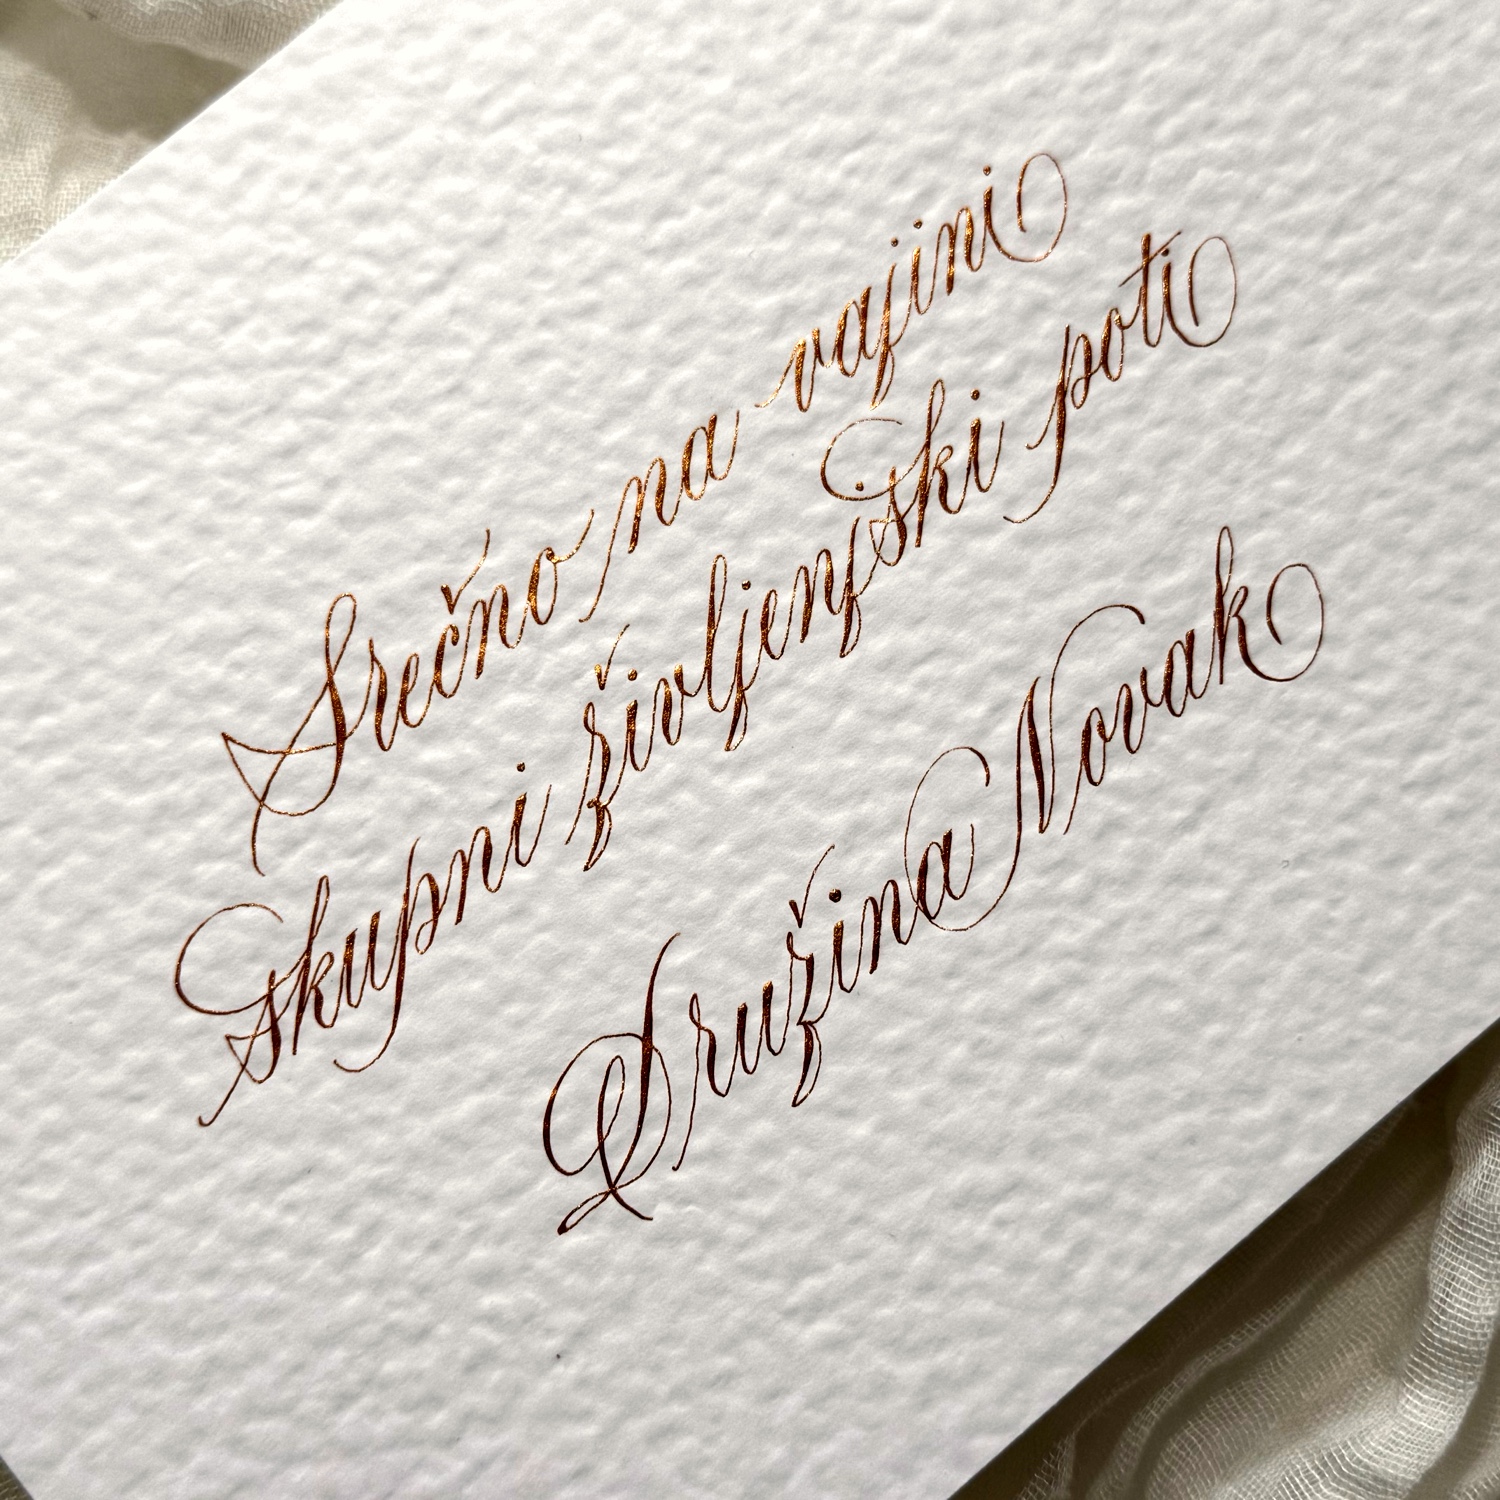 Srečno na vajini
skupni življenjski poti
Družina Novak